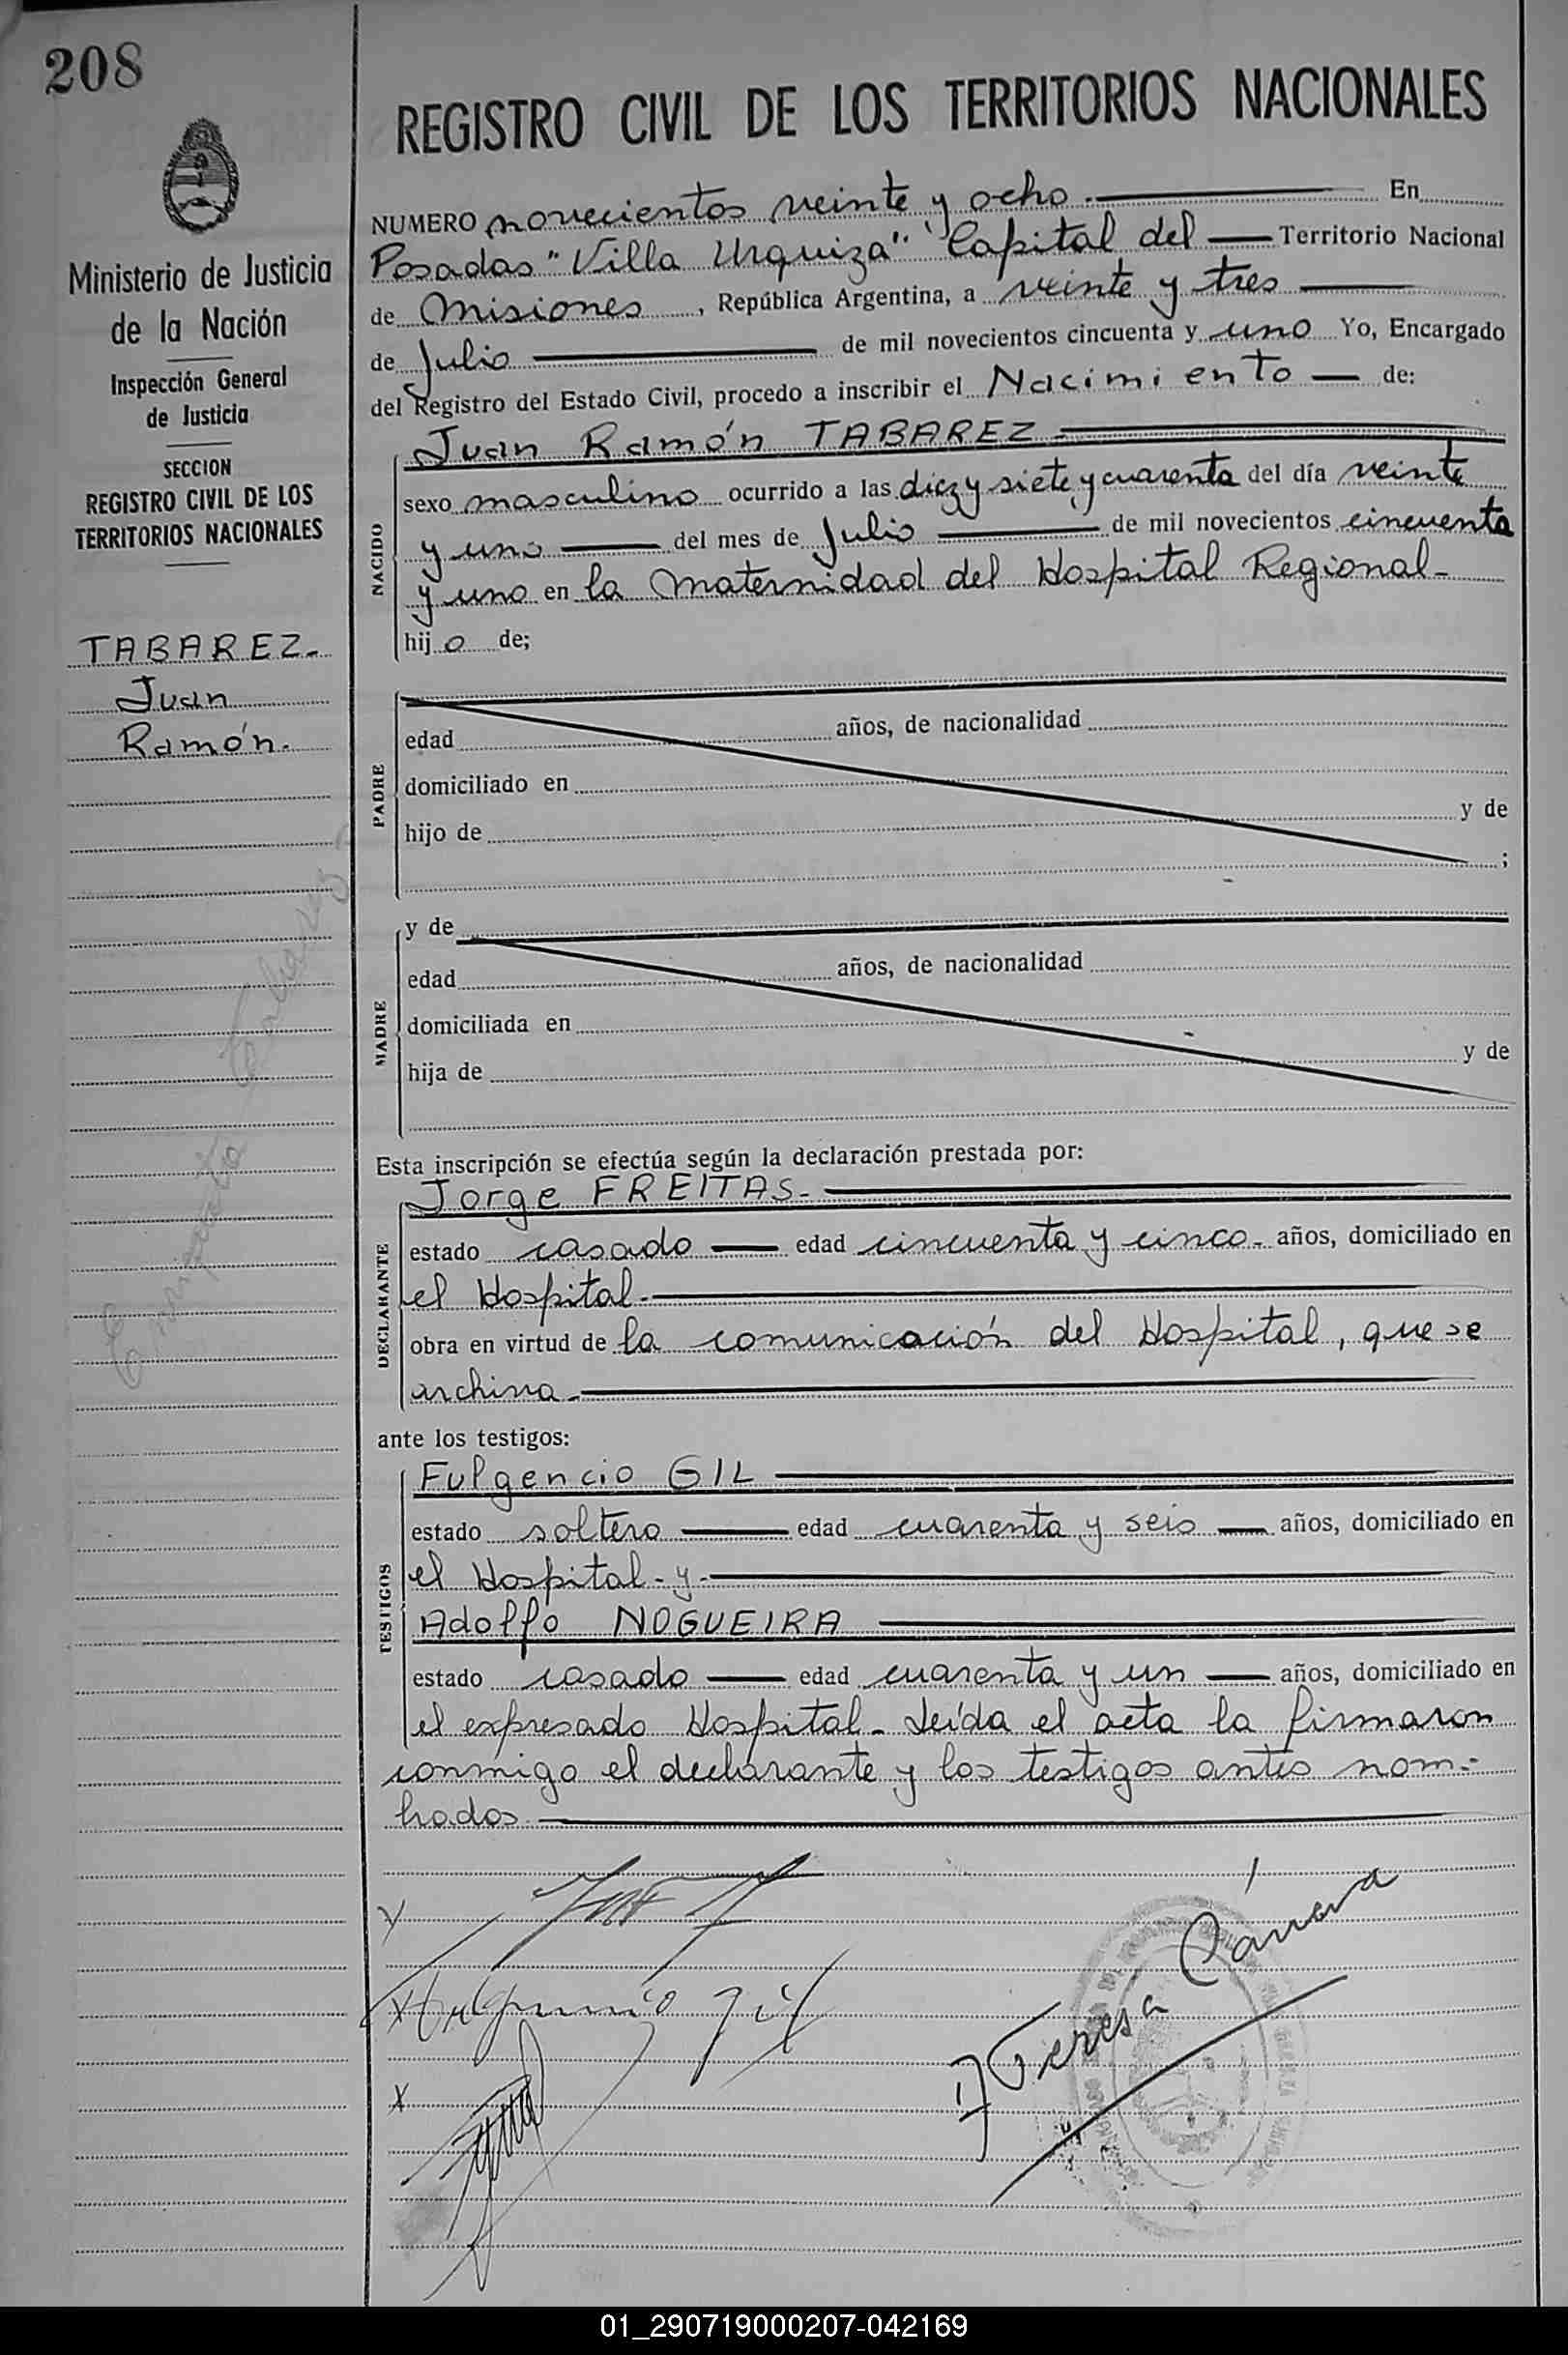 208
REGISTRO CIVIL DE LOS TERRITORIOS NACIONALES
Ministerio de Justicia
de la Nación
Inspección General
de Justicia
SECCION
REGISTRO CIVIL DE LOS
TERRITORIOS NACIONALES
TABAREZ.-
Juan
Ramón.
NUMERO novecientos veinte y ocho.- En
Posadas "Villa Urquiza" Capital del Territorio Nacional
de Misiones, República Argentina, a veinte y tres
de Julio de mil novecientos cincuenta y uno Yo, Encargado
del Registro del Estado Civil, procedo a inscribir el Nacimiento de:
NACIDO
Juan Ramón TABAREZ.-
sexo masculino ocurrido a las diez y siete y cuarenta del día veinte
y uno del mes de Julio de mil novecientos cincuenta
y uno en la Maternidad del Hospital Regional.-
hijo de;
PADRE
edad años, de nacionalidad
domiciliado en
hijo de y de
;
MADRE
y de
edad años, de nacionalidad
domiciliada en
hija de y de
Esta inscripción se efectúa según la declaración prestada por:
DECLARANTE
Jorge FREITAS.-
estado casado edad cincuenta y cinco.- años, domiciliado en
el Hospital.-
obra en virtud de la comunicación del Hospital, que se
archiva.-
ante los testigos:
TESTIGOS
Fulgencio GIL
estado soltero edad cuarenta y seis años, domiciliado en
el Hospital - y -
Adolfo NOGUEIRA
estado casado edad cuarenta y un años, domiciliado en
el expresado Hospital.- Leída el acta la firmaron
conmigo el declarante y los testigos antes nom-
brados.
Fulgencio Gil
Teresa
01_290719000207-042169